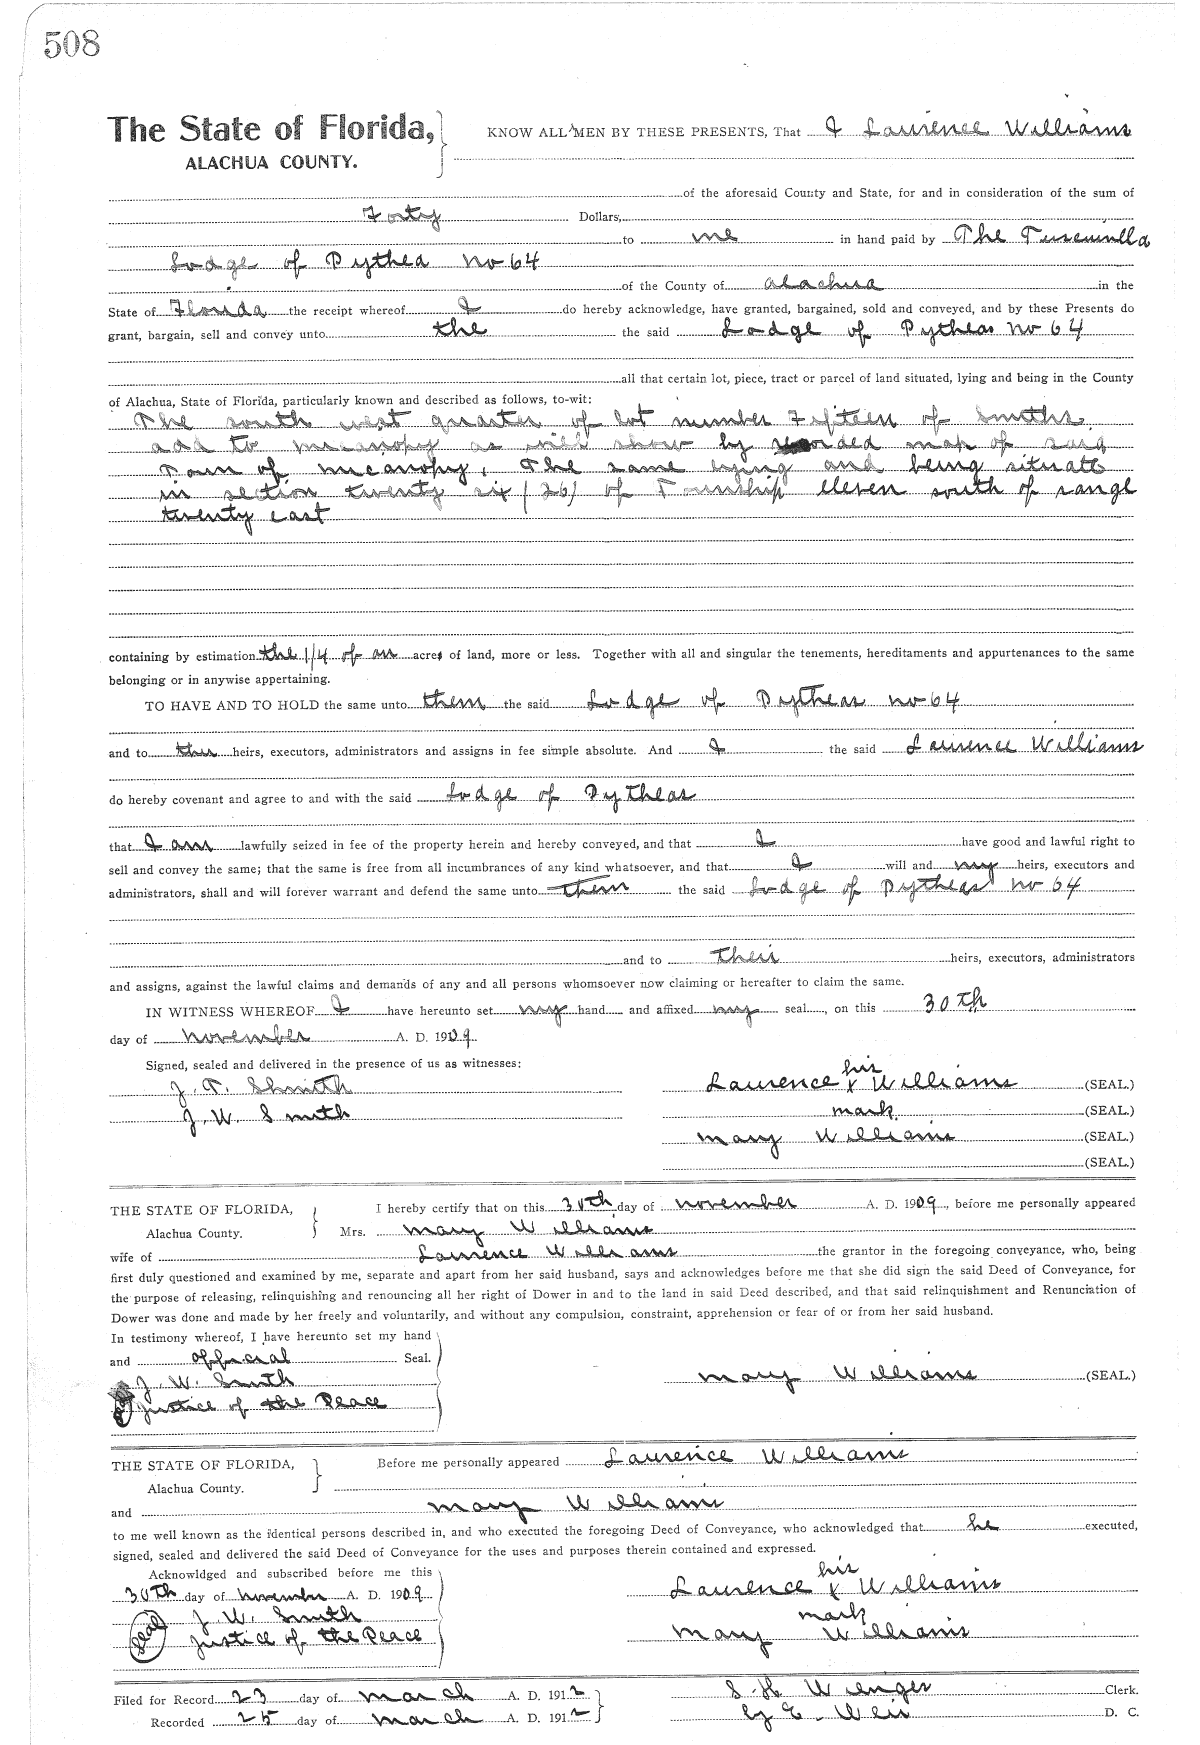 508
The State of Florida, KNOW ALL MEN BY THESE PRESENTS, That I Laurence Williams
ALACHUA COUNTY.
of the aforesaid County and State, for and in consideration of the sum of
Forty Dollars,
to me in hand paid by The Tuscawilla
Lodge of Pythea no 64
of the County of Alachua in the
State of Florida the receipt whereof I do hereby acknowledge, have granted, bargained, sold and conveyed, and by these Presents do
grant, bargain, sell and convey unto the the said Lodge of Pytheas no 64
all that certain lot, piece, tract or parcel of land situated, lying and being in the County
of Alachua, State of Florida, particularly known and described as follows, to-wit:
The south west quarter of lot number Fifteen of Smiths
add to micanopy as will show by recorded map of said
Town of micanopy, The same lying and being situate
in section twenty six (26) of Township eleven south of range
twenty east
containing by estimation the 1/4 of an acre of land, more or less. Together with all and singular the tenements, hereditaments and appurtenances to the same
belonging or in anywise appertaining.
TO HAVE AND TO HOLD the same unto them the said Lodge of Pytheas no 64
and to their heirs, executors, administrators and assigns in fee simple absolute. And I the said Laurence Williams
do hereby covenant and agree to and with the said Lodge of Pytheas
that I am lawfully seized in fee of the property herein and hereby conveyed, and that I have good and lawful right to
sell and convey the same; that the same is free from all incumbrances of any kind whatsoever, and that I will and my heirs, executors and
administrators, shall and will forever warrant and defend the same unto them the said Lodge of Pytheas no 64
and to their heirs, executors, administrators
and assigns, against the lawful claims and demands of any and all persons whomsoever now claiming or hereafter to claim the same.
IN WITNESS WHEREOF I have hereunto set my hand and affixed my seal, on this 30th
day of November A. D. 1909
Signed, sealed and delivered in the presence of us as witnesses:
his
J. T. Shmith Laurence x Williams (SEAL.)
J. W. Smith mark (SEAL.)
mary Williams (SEAL.)
(SEAL.)
THE STATE OF FLORIDA, I hereby certify that on this 30th day of November A. D. 1909, before me personally appeared
Alachua County. Mrs. mary Williams
wife of Laurence Williams the grantor in the foregoing conveyance, who, being
first duly questioned and examined by me, separate and apart from her said husband, says and acknowledges before me that she did sign the said Deed of Conveyance, for
the purpose of releasing, relinquishing and renouncing all her right of Dower in and to the land in said Deed described, and that said relinquishment and Renunciation of
Dower was done and made by her freely and voluntarily, and without any compulsion, constraint, apprehension or fear of or from her said husband.
In testimony whereof, I have hereunto set my hand
and official Seal.
J. W. Smith mary Williams (SEAL.)
Justice of the Peace
THE STATE OF FLORIDA, Before me personally appeared Laurence Williams
Alachua County.
and mary Williams
to me well known as the identical persons described in, and who executed the foregoing Deed of Conveyance, who acknowledged that he executed,
signed, sealed and delivered the said Deed of Conveyance for the uses and purposes therein contained and expressed.
Acknowldged and subscribed before me this his
30th day of November A. D. 1909 Laurence x Williams
Seal J. W. Smith mark
Justice of the Peace mary Williams
Filed for Record 23 day of march A. D. 1912 S. H. Wienges Clerk.
Recorded 25 day of march A. D. 1912 By E. Weir D. C.